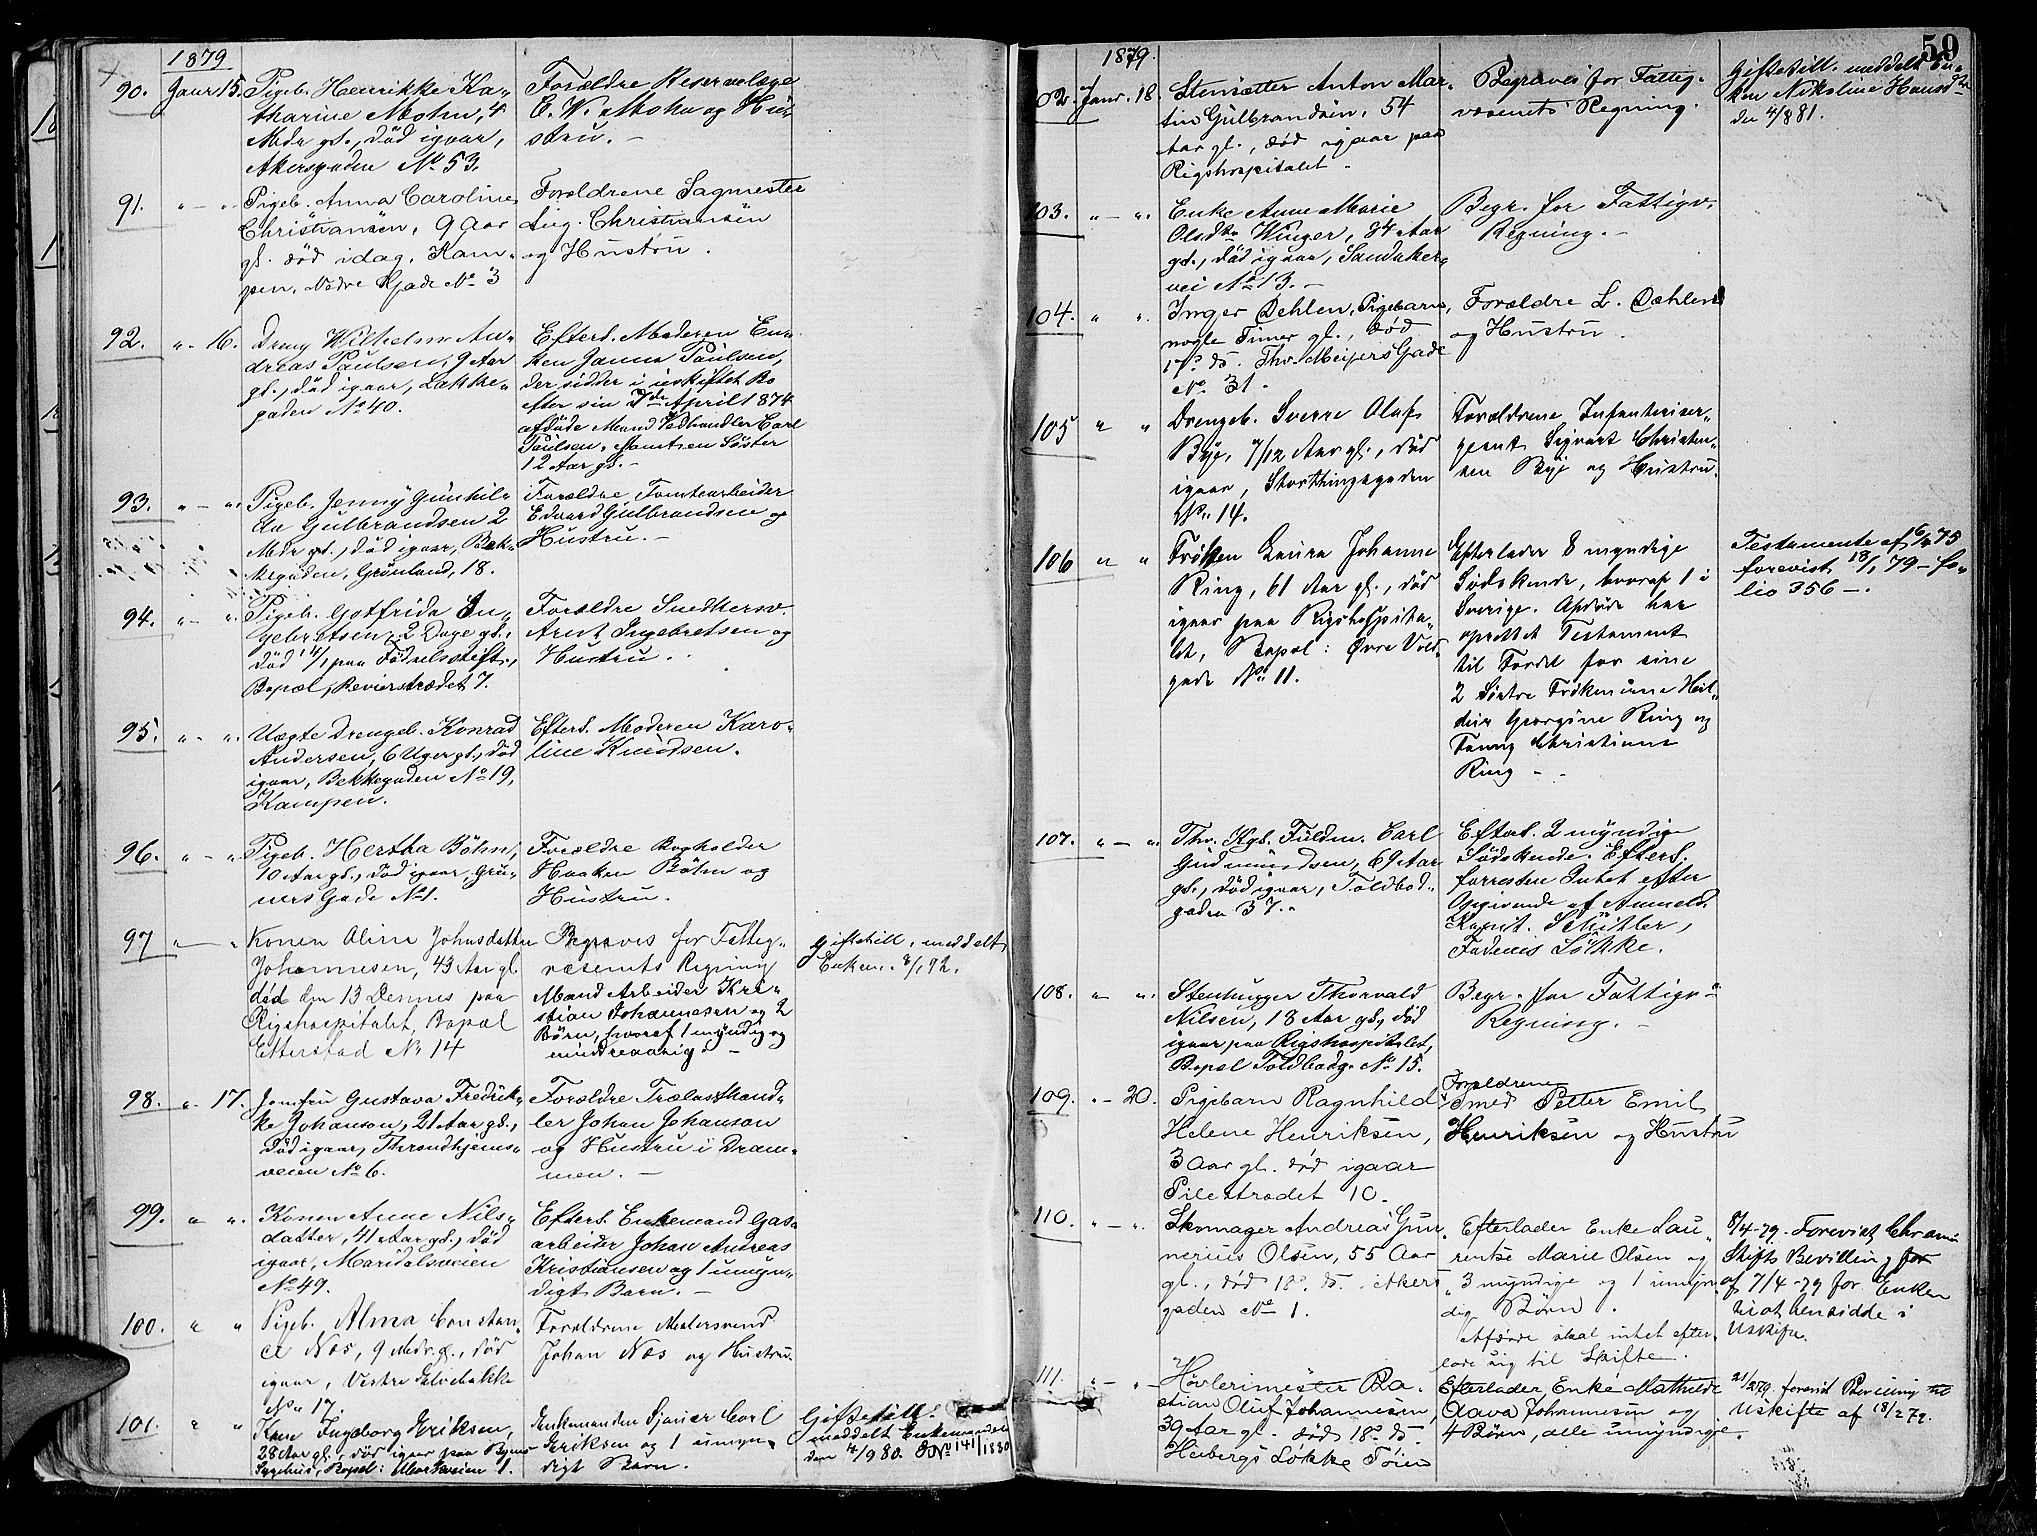 1879
90. Janr 15. Pigeb. Henrikke Ka-
tharine Mohn, 4
Mdr gl., död igaar,
Akersgaden No 53.
Forældre Reservelæge
E. W. Mohn og Hu-
stru. -
91. " - " Pigeb. Anna Caroline
Christiansen, 9 Aar
gl. död idag, Kam-
pen, Nedre Gade No 3
Forældrene Sagmester
Aug. Christiansen
og Hustru.
92. " - 16. Dreng Wilhelm An-
dreas Paulsen, 9 Aar
gl., död igaar, Lakke-
gaden No 40.
Efterl. Moderen En-
ken Janna Paulsen,
der sidder i uskiftet Bo
efter sin 7de April 1874
afdöde Mand Vedhandler Carl
Paulsen, Samt en Söster
12 Aar gl. -
93. " - " Pigeb. Jenny Gunhil-
da Gulbrandsen 2
Mdr gl., död igaar, Bak-
kegaden, Grönland, 18.
Forældre Tomtearbeider
Edvard Gulbrandsen og
Hustru. -
94. " - " Pigeb. Gotfrida In-
gebretsen, 2 Dage gl.,
död 14/1 paa Fødselsstift.,
Bopæl, Revierstrædet 7.
Forældre Snedkersv.
Arent Ingebretsen og
Hustru.
95. " - " Uægte Drengeb. Konrad
Andersen, 6 Uger gl., död
igaar, Bekkegaden No 19,
Kampen.
Efterl. Moderen Karo-
line Knudsen.
96. " - " Pigeb. Hertha Böhn,
10 Aar gl., död igaar, Gru-
ners Gade No 1.
Forældre Bogholder
Haaken Böhn og
Hustru.
97 " - " Konen Oline Johnsdatter
Johannesen, 43 Aar gl.
död den 13 Dennes paa
Rigshospitalet, Bopæl
Etterstad No 14
Begraves for Fattig-
væsenets Regning
Mand Arbeider Kri-
stian Johannesen og 2
Börn, hvoraf 1 myndig og
1 mindreaarig. -
Giftetill. meddelt
Enkem. 8/1 92.
98. " - 17. Jomfru Gustava Fredrik-
ke Johanson, 21 Aar gl.,
död igaar, Throndhjems-
veien No 6.
Forældre Trælasthand-
ler Johan Johanson
og Hustru i Dram-
men. -
99. " " Konen Anne Nils-
datter, 41 Aar gl., död
igaar, Maridalsveien
No 49.
Efterl. Enkemand Gas-
arbeider Johan Andreas
Kristiansen og 1 umyn-
digt Barn. -
100. " " Pigeb. Alma Constan-
ce Næs, 9 Mdr. gl., död
igaar, Vestre Elvebakke
No 17.
Forældrene Malersvend
Johan Næs og Hustru.
101. " " Kone Ingeborg Eriksen,
28 Aar gl., död igaar paa Byens
Sygehus, Bopæl: Markveien 1.
Enkemanden Sjauer Carl
Eriksen og 1 umyn-
digt Barn.
Giftetill.
meddelt Enkemanden
den 4/9 80. No 141/1880
59
1879.
102. Janr. 18. Stensætter Anton Mar-
tin Gulbrandsen, 54
Aar gl., död igaar paa
Rigshospitalet.
Begraves for Fattig-
væsenets Regning.
Giftetill. meddelt En-
ken Nikoline Hansdtr
den 4/8 81.
103. " - " Enke Anne Marie
Olsdtr Winger, 84 Aar
gl., död igaar, Sandaker-
vei No 13. -
Begr. for Fattigv.
Regning. -
104. " " Inger Dæhlen, Pigebarn,
nogle Timer gl., död
17de ds. Thv. Meyers Gade
No 31.
Forældre L. Dæhlen
og Hustru.
105 " " Drengeb. Sverre Olaf
Bye, 7/12 Aar gl., död
igaar, Storthingsgaden
No 14.
Forældrene Infanteriser-
geant Sigvart Christen-
sen Bye og Hustru.
106 " " Frøken Laura Johanne
Ring, 61 Aar gl., död
igaar paa Rigshospita-
let, Bopæl: Övre Vold-
gade No 11.
Efterlader 8 myndige
Sødskende, hvoraf 1 i
Sverige. Afdøde har
oprettet Testament
til Fordel for sine
2 Söstre Frøknerne Hel-
dine Georgine Ring og
Fanny Christiane
Ring -
Testamente af 16/9 75
forevist 18/1 79 - fo-
lio 356 -.
107. " - " Thv. Kgl. Fuldm. Carl
Gudmundsen, 69 Aar
gl., död igaar, Toldbod-
gaden 37. -
Efterl. 2 myndige
Södskende. Efterl.
forresten Intet efter
Opgivende af Anmeld.
Kapit. Schütler,
Fadenes Løkke.
108. " " Stenhugger Thorvald
Nilsen, 18 Aar gl., död
igaar paa Rigshospitalet,
Bopæl Toldbodg. No 15.
Begr. for Fattigv-
Regning. -
109. " - 20. Pigebarn Ragnhild
Helene Henriksen,
3 Aar gl. død igaar
Pilestrædet 10.
Forældrene
Smed Petter Emil
Henriksen og Hustru
110. " - " Skomager Andreas Gun-
nerius Olsen, 55 Aar
gl., død 18de ds. Akers
gaden No 1.
Efterlader Enke Lau-
rentse Marie Olsen og
3 myndige og 1 umyn-
dig Børn.
Afdøde skal intet efter-
lade sig til Skifte.
8/4-79. Forevist Chr.ania
Stifts Bevilling for
af 7/4-79 for Enken
til at hensidde i
Uskifte.
111. " - " Høvlerimester Ba-
stian Oluf Johannesen,
39 Aar gl. død 18de ds.
Heibergs Løkke Töien
Efterlader Enke Mathilde
Aava Johannesen og
4 Børn, alle umyndige.
21/2 79. forevist Bevilling til
Uskifte af 18/2 79.